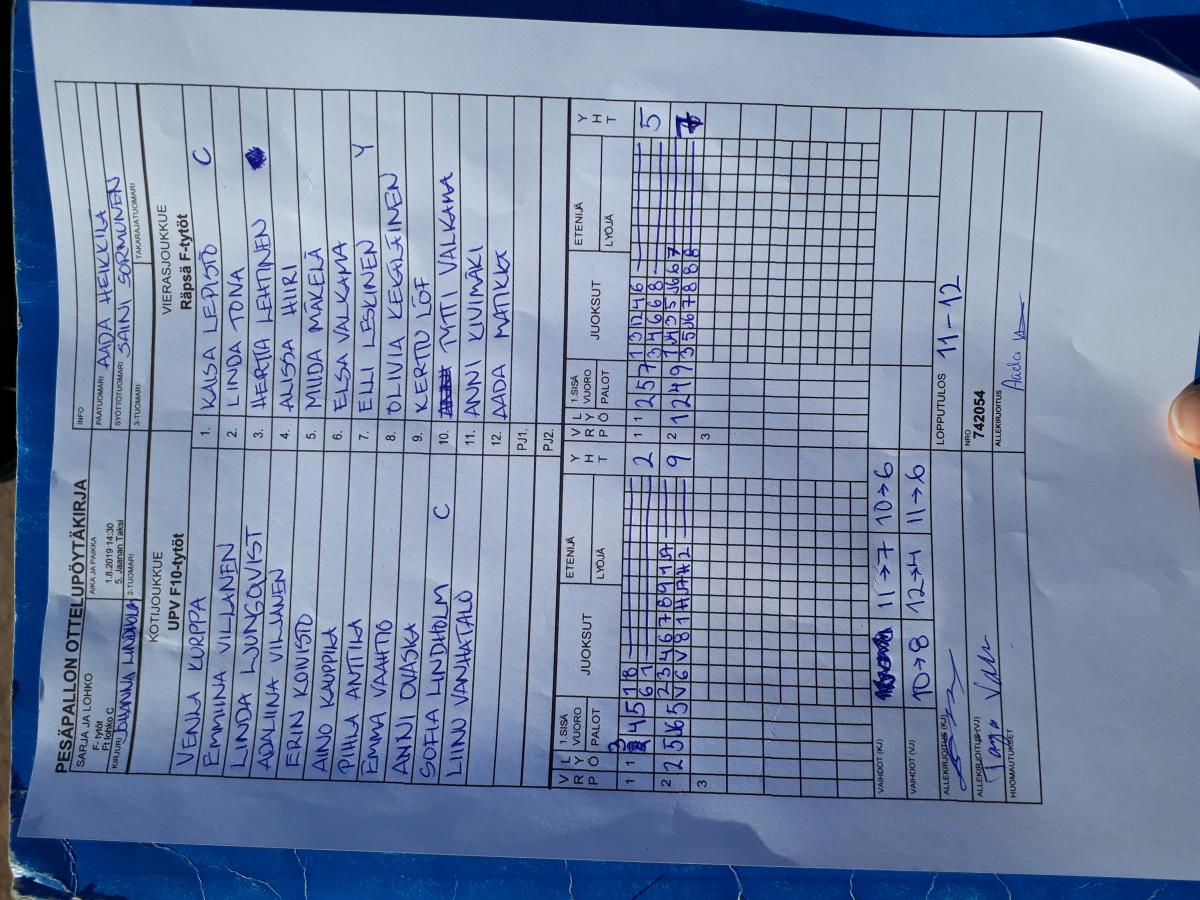 PESÄPALLON OTTELUPÖYTÄKIRJA
SARJA JA LOHKO
F- tytöt
Ft lohko C
AIKA JA PAIKKA
1.8.2019 14:30
5. Jaanan Taksi
INFO
PÄÄTUOMARI AADA HEIKKILÄ
SYÖTTÖTUOMARI SAINI SORMUNEN
KIRJURI JOHANNA LINDHOLM
2-TUOMARI
3-TUOMARI
TAKARAJATUOMARI
KOTIJOUKKUE
UPV F10-tytöt
VIERASJOUKKUE
Räpsä F-tytöt
VENLA KURPPA 1. KAISA LEPISTÖ C
EMMIINA VILJANEN 2. LINDA TONA
LINDA LJUNGQVIST 3. HERTTA LEHTINEN
ADALIINA VILJANEN 4. ALISSA HIIRI
ERIN KOIVISTO 5. MIIDA MÄKELÄ
AINO KAUPPILA 6. ELSA VALKAMA
PIHLA ANTTILA 7. ELLI LESKINEN Y
EMMA VAHTIO 8. OLIVIA KEGÄLÄINEN
ANNI OVASKA 9. KERTTU LÖF
SOFIA LINDHOLM C 10. TYTTI VALKAMA
LIINU VANHATALO 11. ANNI KIVIMÄKI
12. AADA MATIKKA
PJ1.
PJ2.
V R L Y P Ö 1.SISÄ VUORO PALOT JUOKSUT ETENIJÄ LYÖJÄ Y H T V R L Y P Ö 1.SISÄ VUORO PALOT JUOKSUT ETENIJÄ LYÖJÄ Y H T
1 1 3 4 5 1 8 2 1 1 2 5 7 1 3 12 4 6 5
6 1 3 4 6 6 8
2 2 5 6 5 2 3 4 6 7 8 9 1 9 2 12 4 9 7
3 3
VAIHDOT (KJ) 11→7 10→6
VAIHDOT (VJ) 10→8 12→4 11→6
LOPPUTULOS 11-12
ALLEKIRJOITUS (KJ)
NRO
742054
ALLEKIRJOITUS (VJ)
ALLEKIRJOITUS Aada
HUOMAUTUKSET